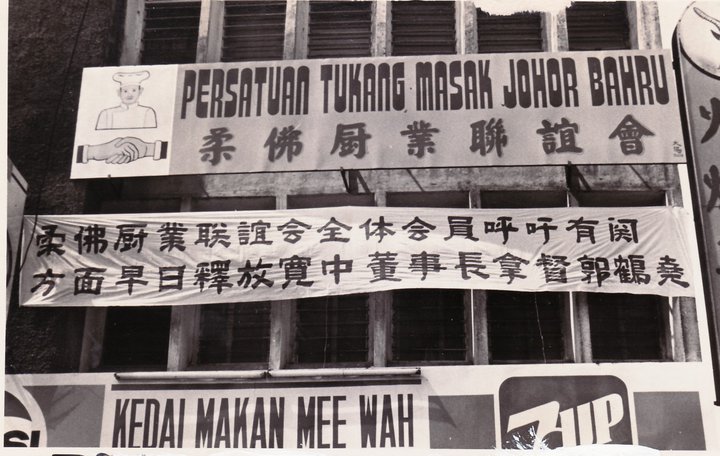 PERSATUAN TUKANG MASAK JOHOR BAHRU
柔佛厨業聯誼會
柔佛厨業联誼会全体会員呼吁有関
方面早日釋放寬中董事長拿督郭鶴堯
KEDAI MAKAN MEE WAH
7UP